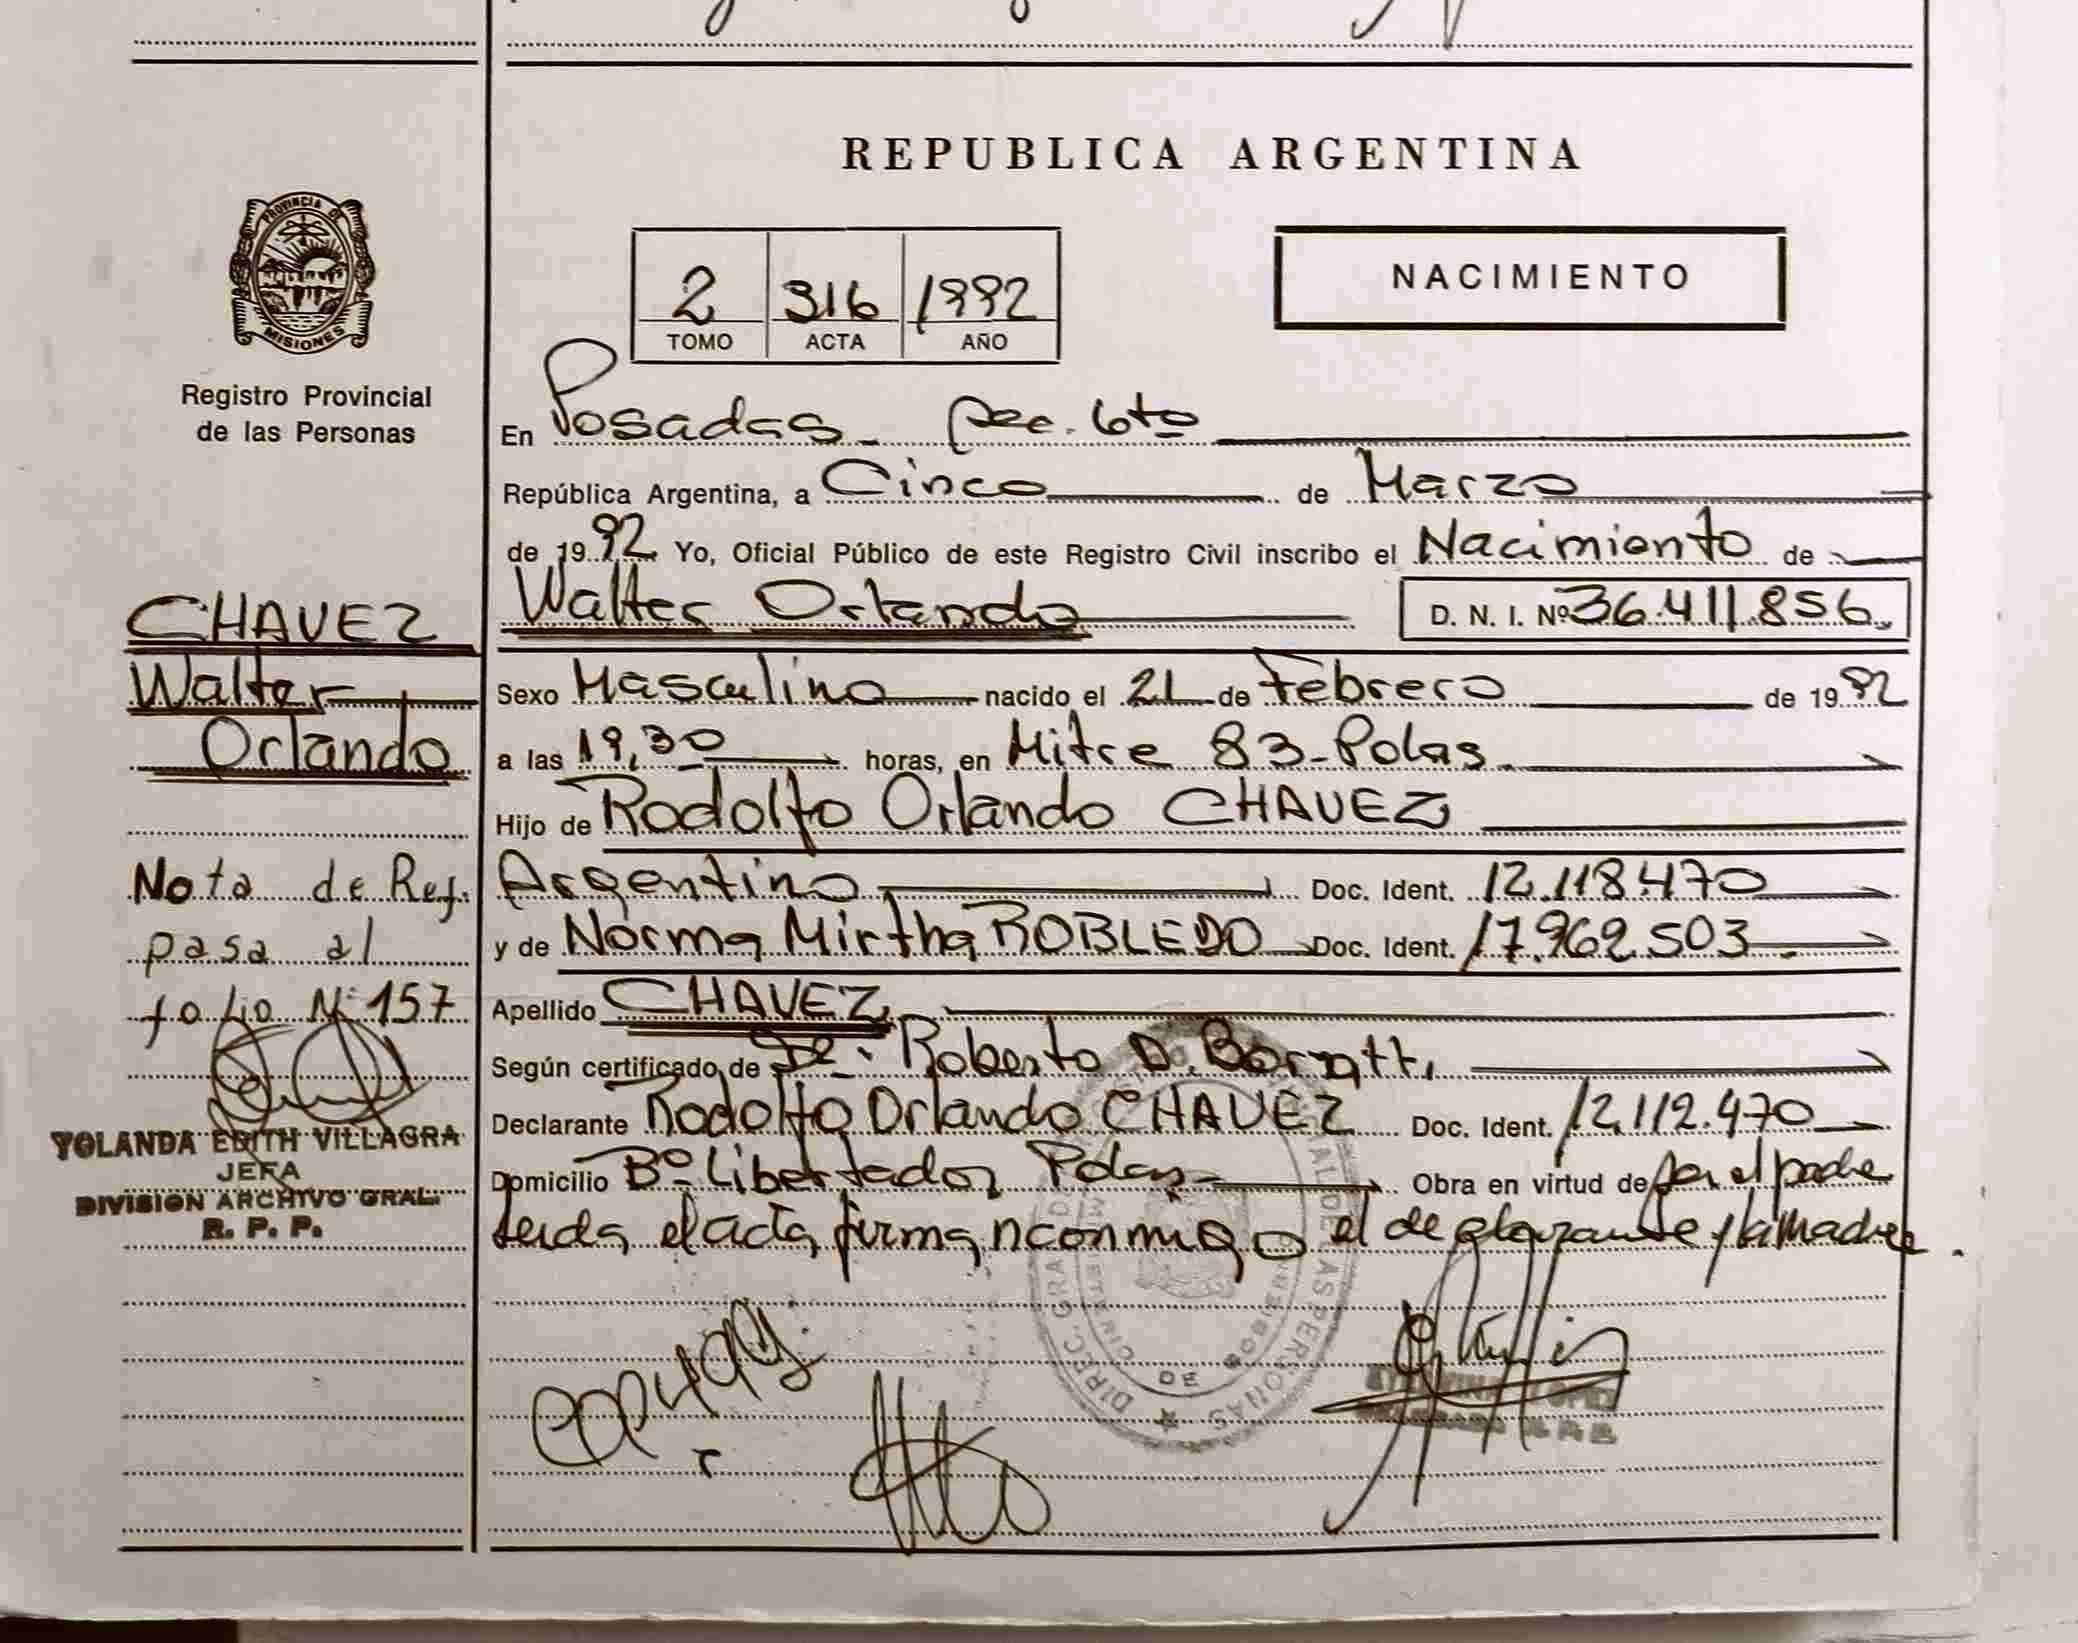 REPUBLICA ARGENTINA
PROVINCIA DE
MISIONES
Registro Provincial
de las Personas
2 316 1992
TOMO ACTA AÑO
NACIMIENTO
En Posadas - sec. 6to
República Argentina, a Cinco de Marzo
de 1992 Yo, Oficial Público de este Registro Civil inscribo el Nacimiento de
Walter Orlando D. N. I. Nº 36.411.856
Sexo Masculino nacido el 21 de Febrero de 1992
a las 19,30 horas, en Mitre 83-Pdas.
Hijo de Rodolfo Orlando CHAVEZ
Argentino Doc. Ident. 12.118.470
y de Norma Mirtha ROBLEDO Doc. Ident. 17.962.503
Apellido CHAVEZ
Según certificado de Dr. Roberto D.
Declarante Rodolfo Orlando CHAVEZ Doc. Ident. 12.112.470
Domicilio Bº Libertador Pdas Obra en virtud de ser el padre
Leida el acta firman conmigo el declarante y la madre.
CHAVEZ
Walter
Orlando
Nota de Ref.
pasa al
folio Nº 157
YOLANDA EDITH VILLAGRA
JEFA
DIVISION ARCHIVO GRAL.
R. P. P.
DIREC. GRAL DE LAS PERSONAS
DE